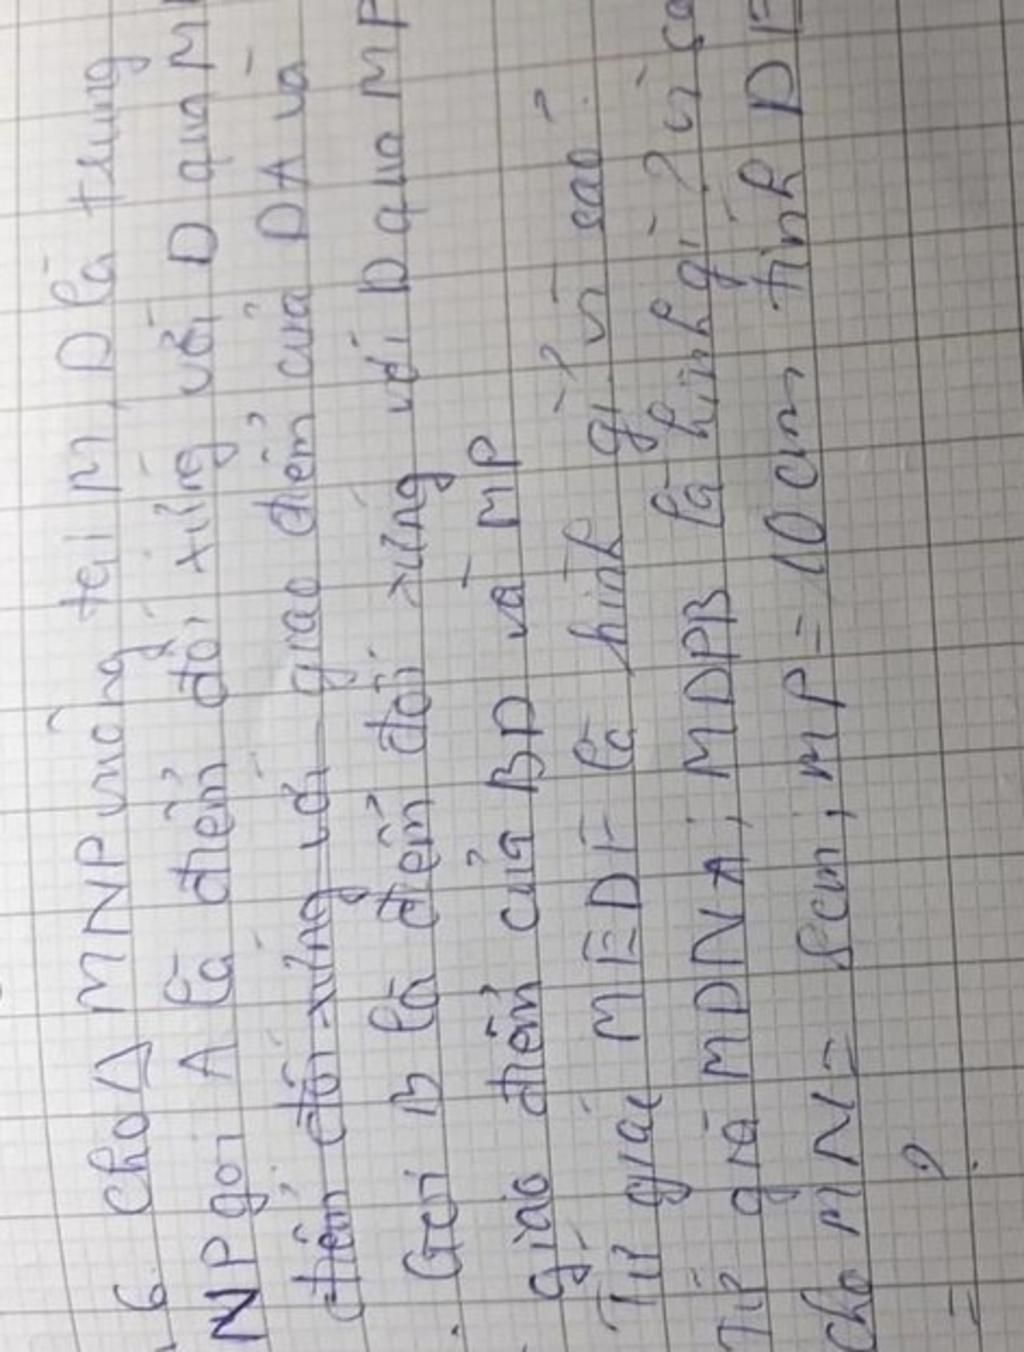 6 cho Δ MNP vuông tại M, D là trung
NP gọi A là điểm đối xứng với D qua M
điểm đối xứng với giao điểm của DA và
Gọi B là điểm đối xứng với D qua MP
giao điểm của BD và MP
Tứ giác MEDF là hình gì? vì sao?
Tứ giá MDNA; MDPB là hình gì? vì sa
cho MN = 8cm; MP = 10cm tính DF
= ?